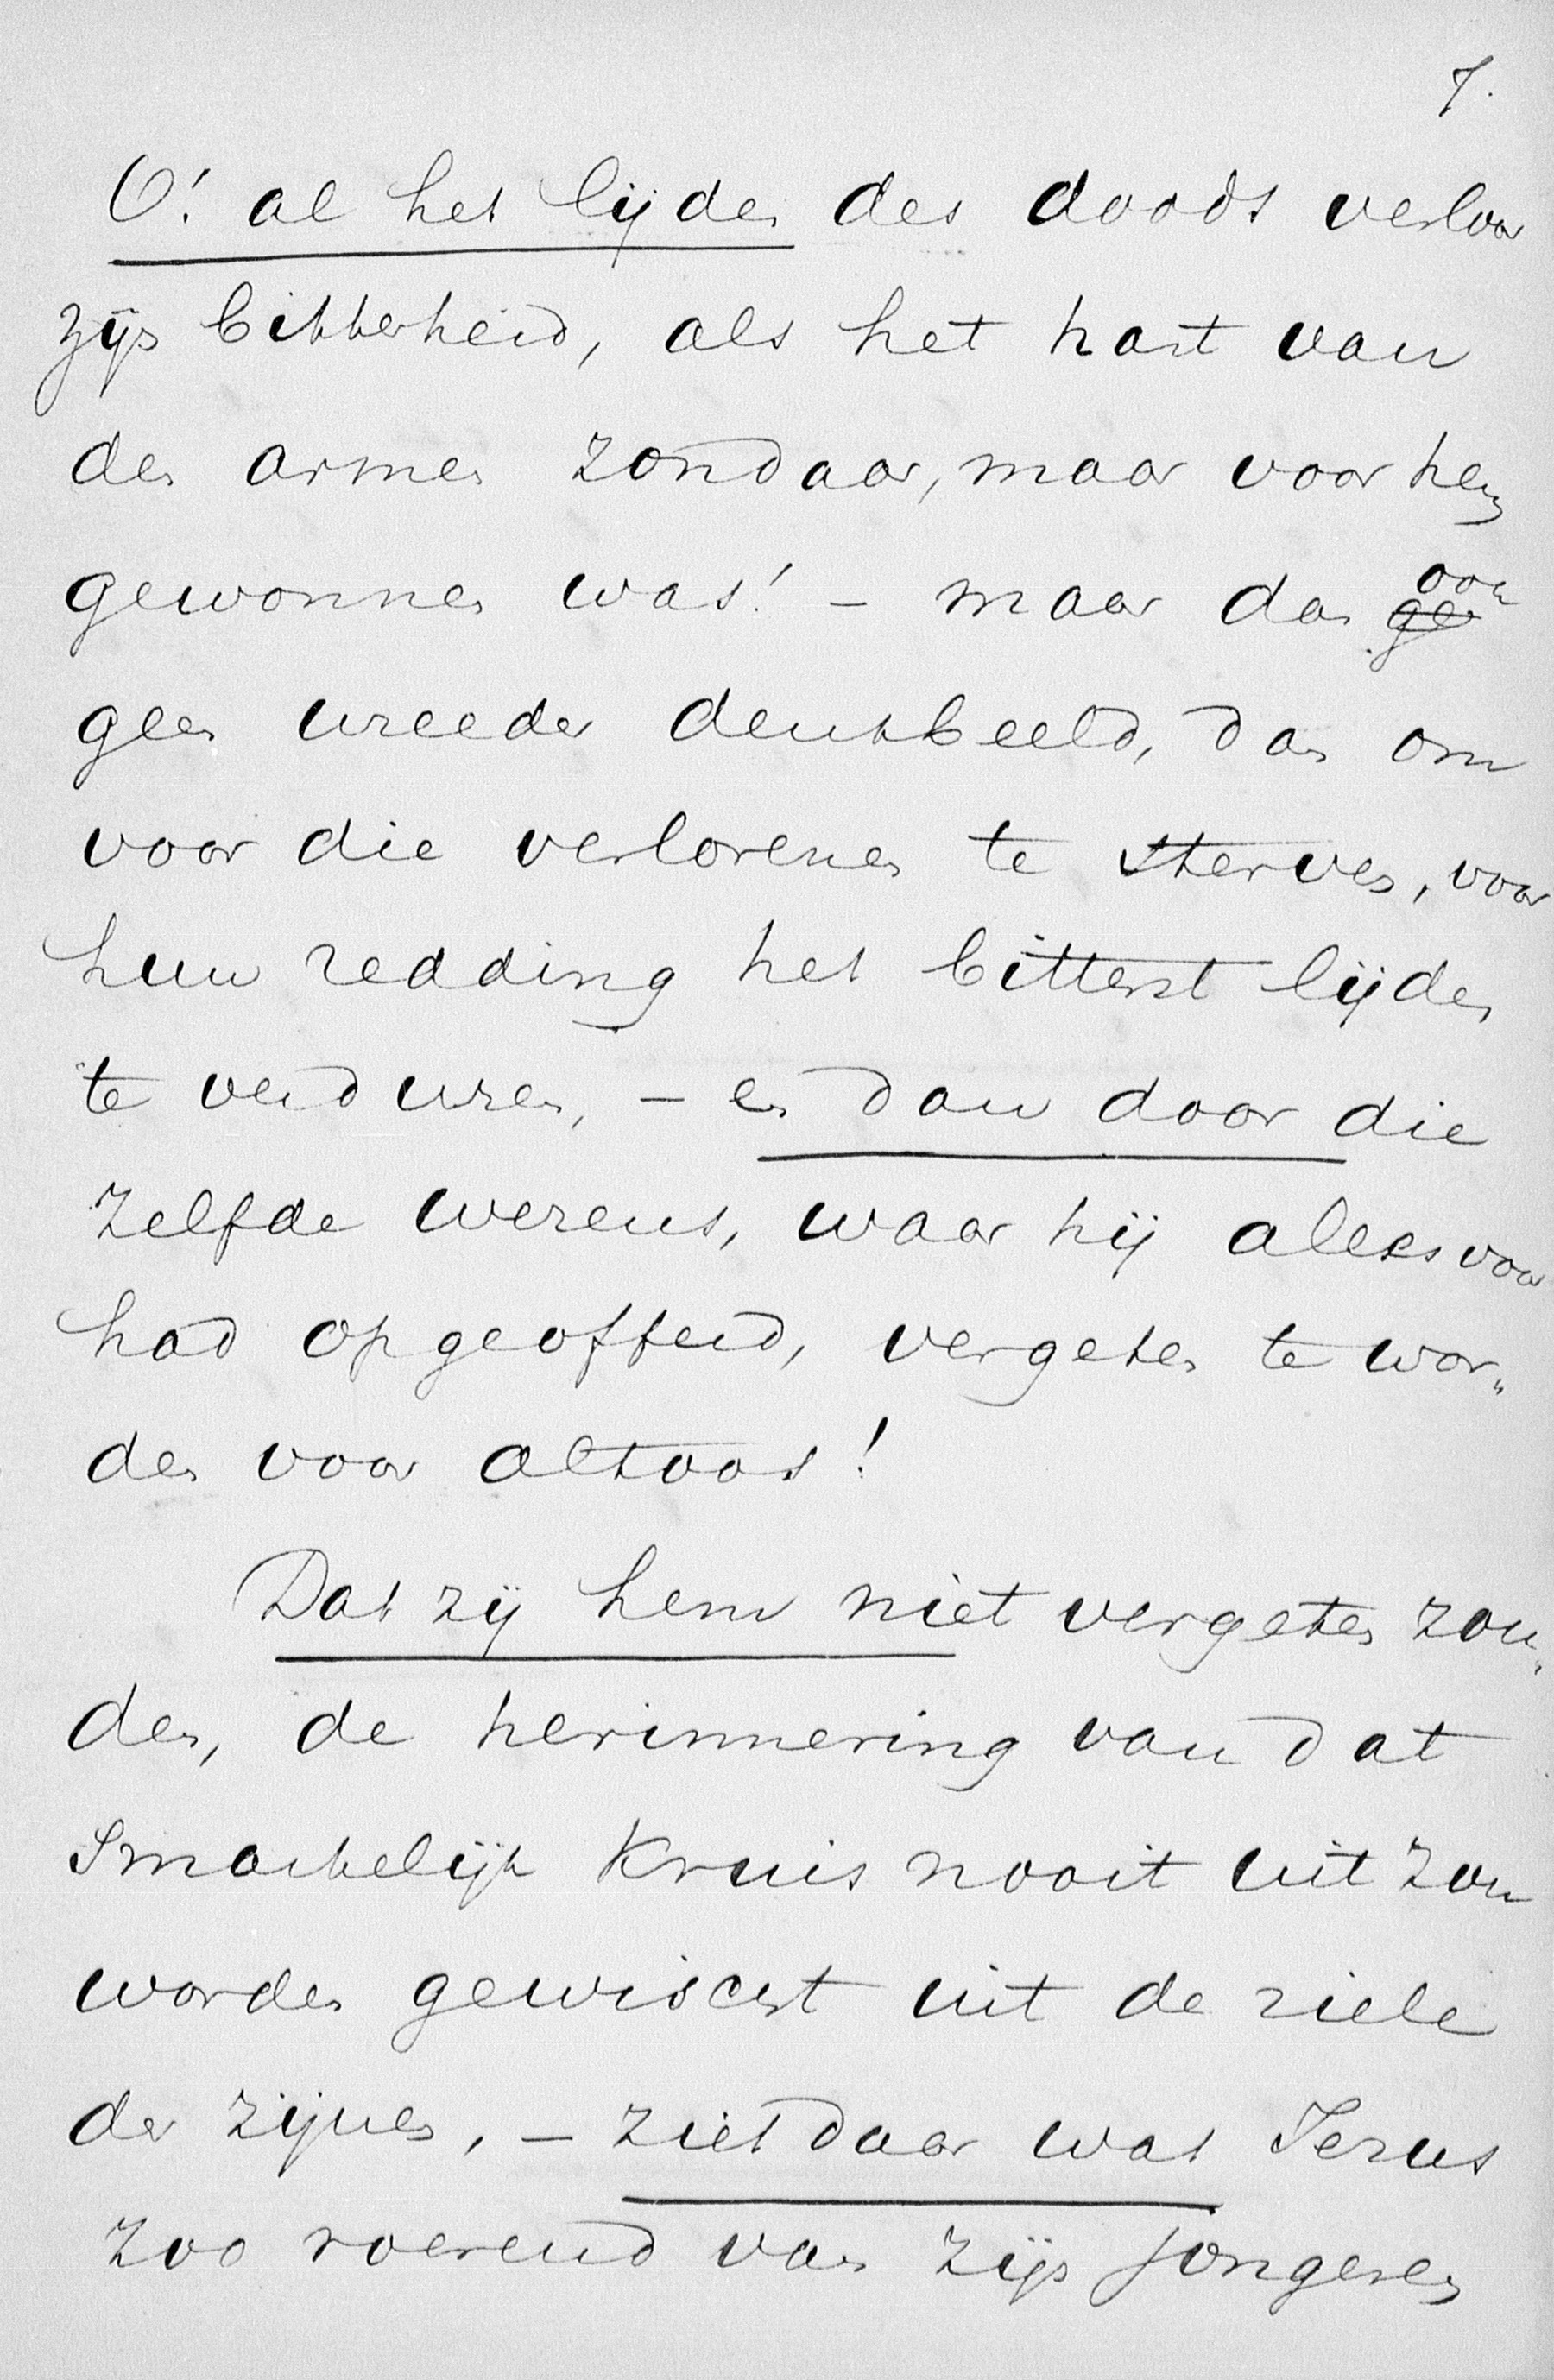 7.
O! al het lijden des doods verloor
zijn bitterheid, als het hart van
den armen zondaar, maar voor hem
gewonnen was! – maar dan ook ge
geen wreeder denkbeeld, dan om
voor die verlorenen te sterven, voor
hun redding het bitterst lijden
te verduren, – en dan door die
zelfde wezens, waar hij alles voor
had opgeofferd, vergeten te wor„
den voor altoos!
Dat zij hem niet vergeten zou„
den, de herinnering van dat
smartelijk Kruis nooit uit zou
worden gewischt uit de ziele
der zijnen, – ziet daar wat Jezus
zoo roerend van zijn jongeren